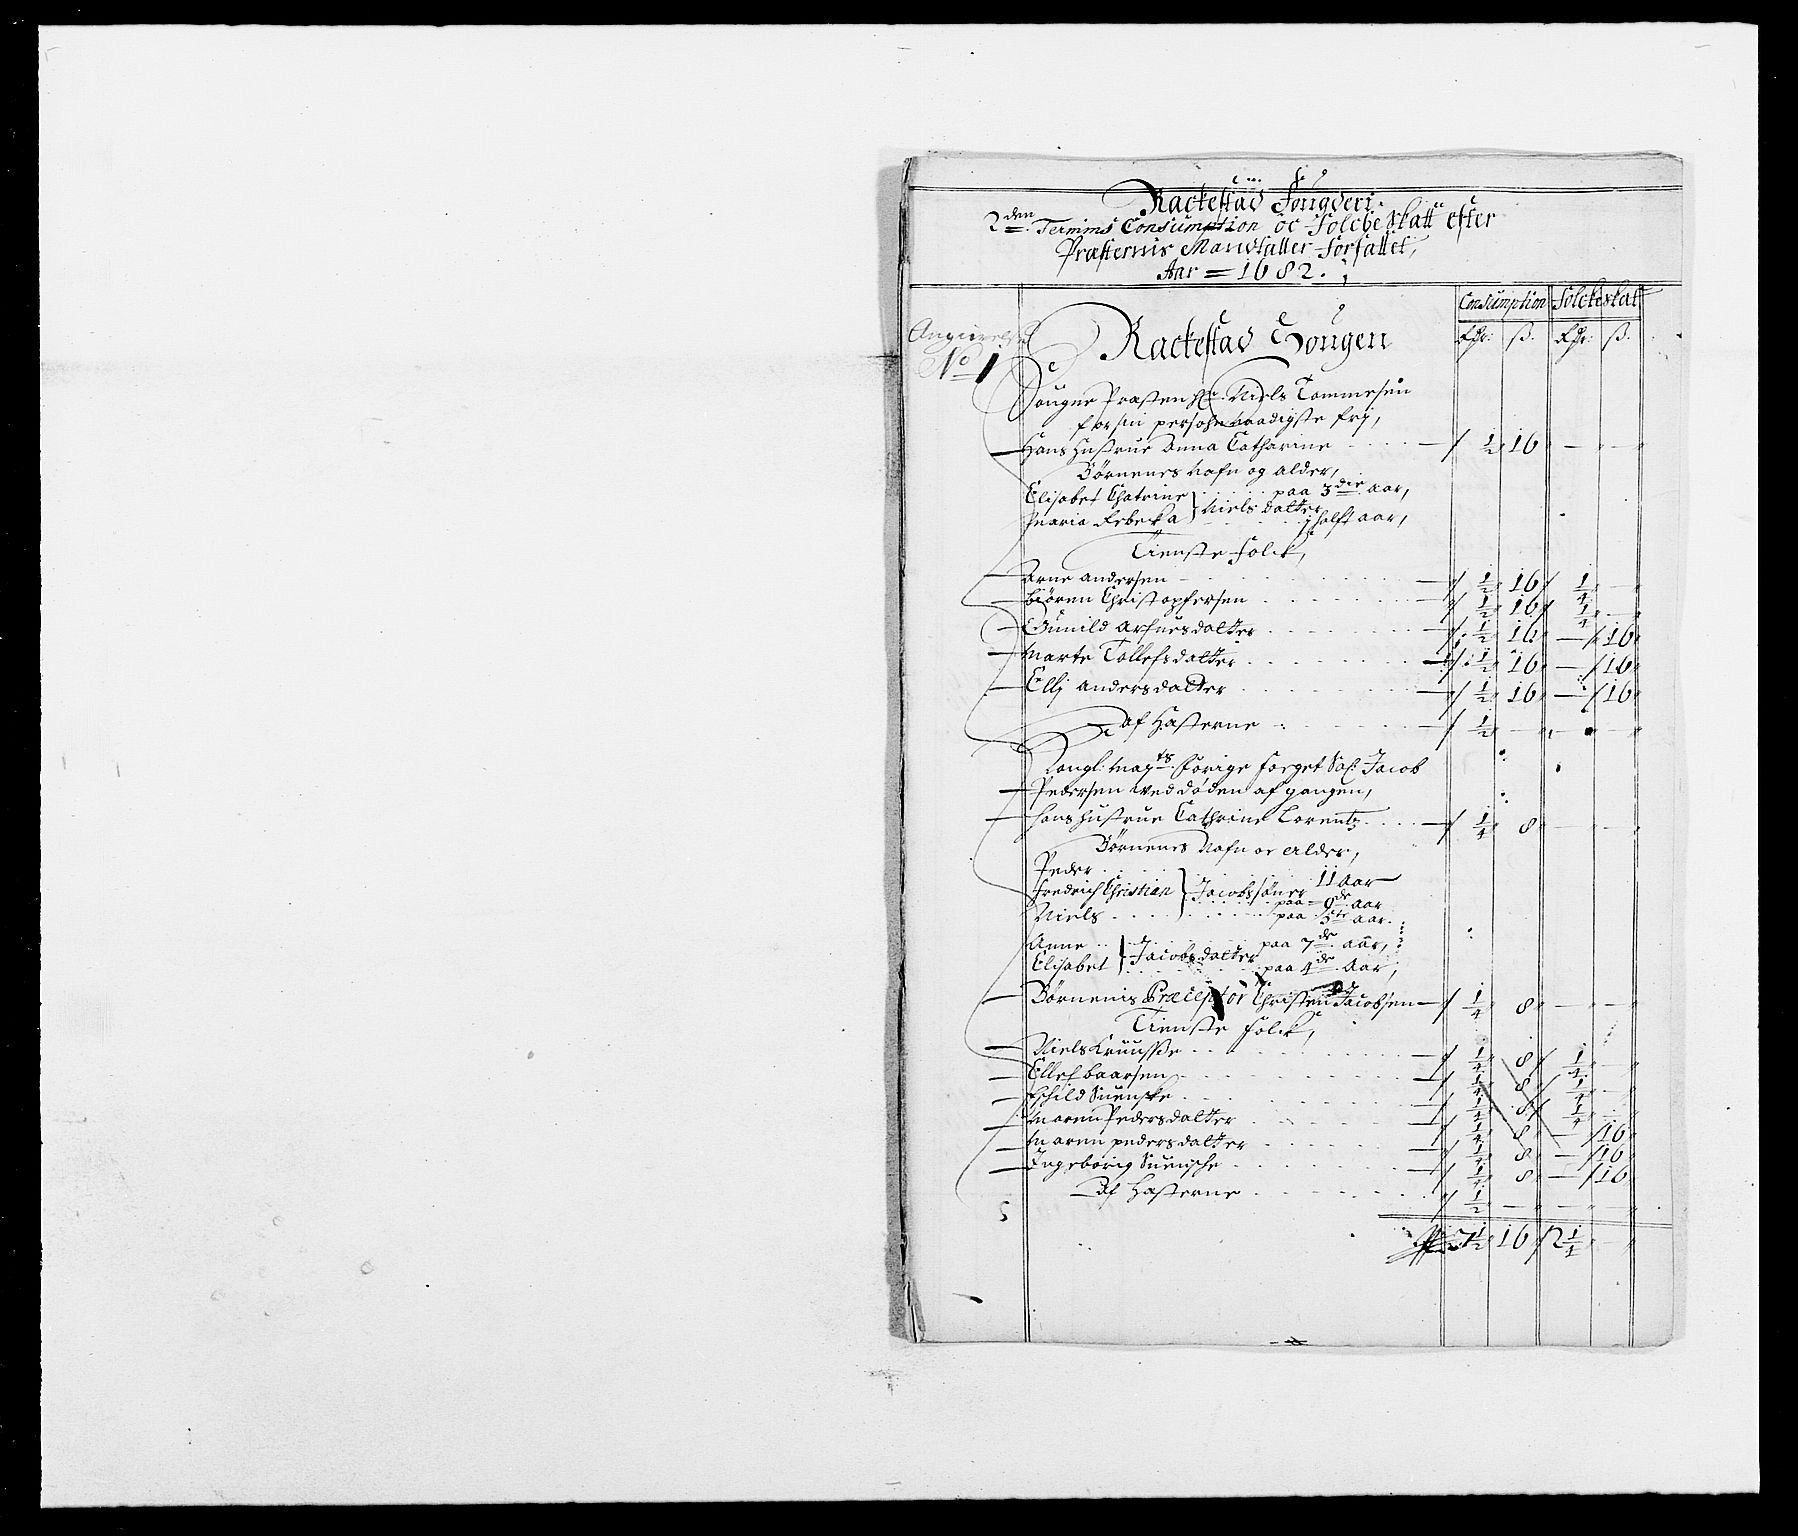 Rackestad Fougderi
2den Termins Consumption oc Folckeskatt efter
Præsternis Mandtaller forfattet,
Aar = 1682.
Consumption Folckeskatt
Rdr: ß. Rdr: ß.
Angivelse
No 1
Rackestad Sougen
Sougne Præsten Hr. Niels Tommesøn
for sin persohn naadigste frj,
Hans Hustrue Anna Catharine 1/2 16 — —
Børnenes Nafn og alder,
Elisabet Chatrine } Niels datter paa 3die aar,
Maria Rebecka } halft aar,
Tienste Folck,
Arne Andersen 1/2 16 1/4 —
Biören Christophersen 1/2 16 1/4 —
Gunild Arfuesdatter 1/2 16 — 16
Marte Tollefsdatter 1/2 16 — 16
Elli Andersdatter 1/2 16 — 16
af Hesterne 1/2 — — —
Kongl: Mayts forige foeget Sal: Jacob
Pedersen ved døden afgangen,
Hans Hustrue Cathrine Lorentz 1/4 8 — —
Børnenes Nafn oc Alder,
Peder 11 Aar
Fredrich Christian } Jacobssöner paa 9de Aar
Niels paa 5te aar
Anne paa 7de aar,
Elisabet } Jacobsdatter paa 4de Aar,
Börnenis Præceptor Christen Jacobsen 1/4 8 — —
Tienste Folck,
Niels Kruusse 1/4 8 1/4 —
Ellef baarsen 1/4 8 1/4 —
Eschild Suenske 1/4 8 1/4 —
Maren Pedersdatter 1/4 8 — 16
Maren pedersdatter 1/4 8 — 16
Ingeborig Suensche 1/4 8 — 16
Af Hesterne 1/2 — — —
7 1/2 16 2 1/4 —